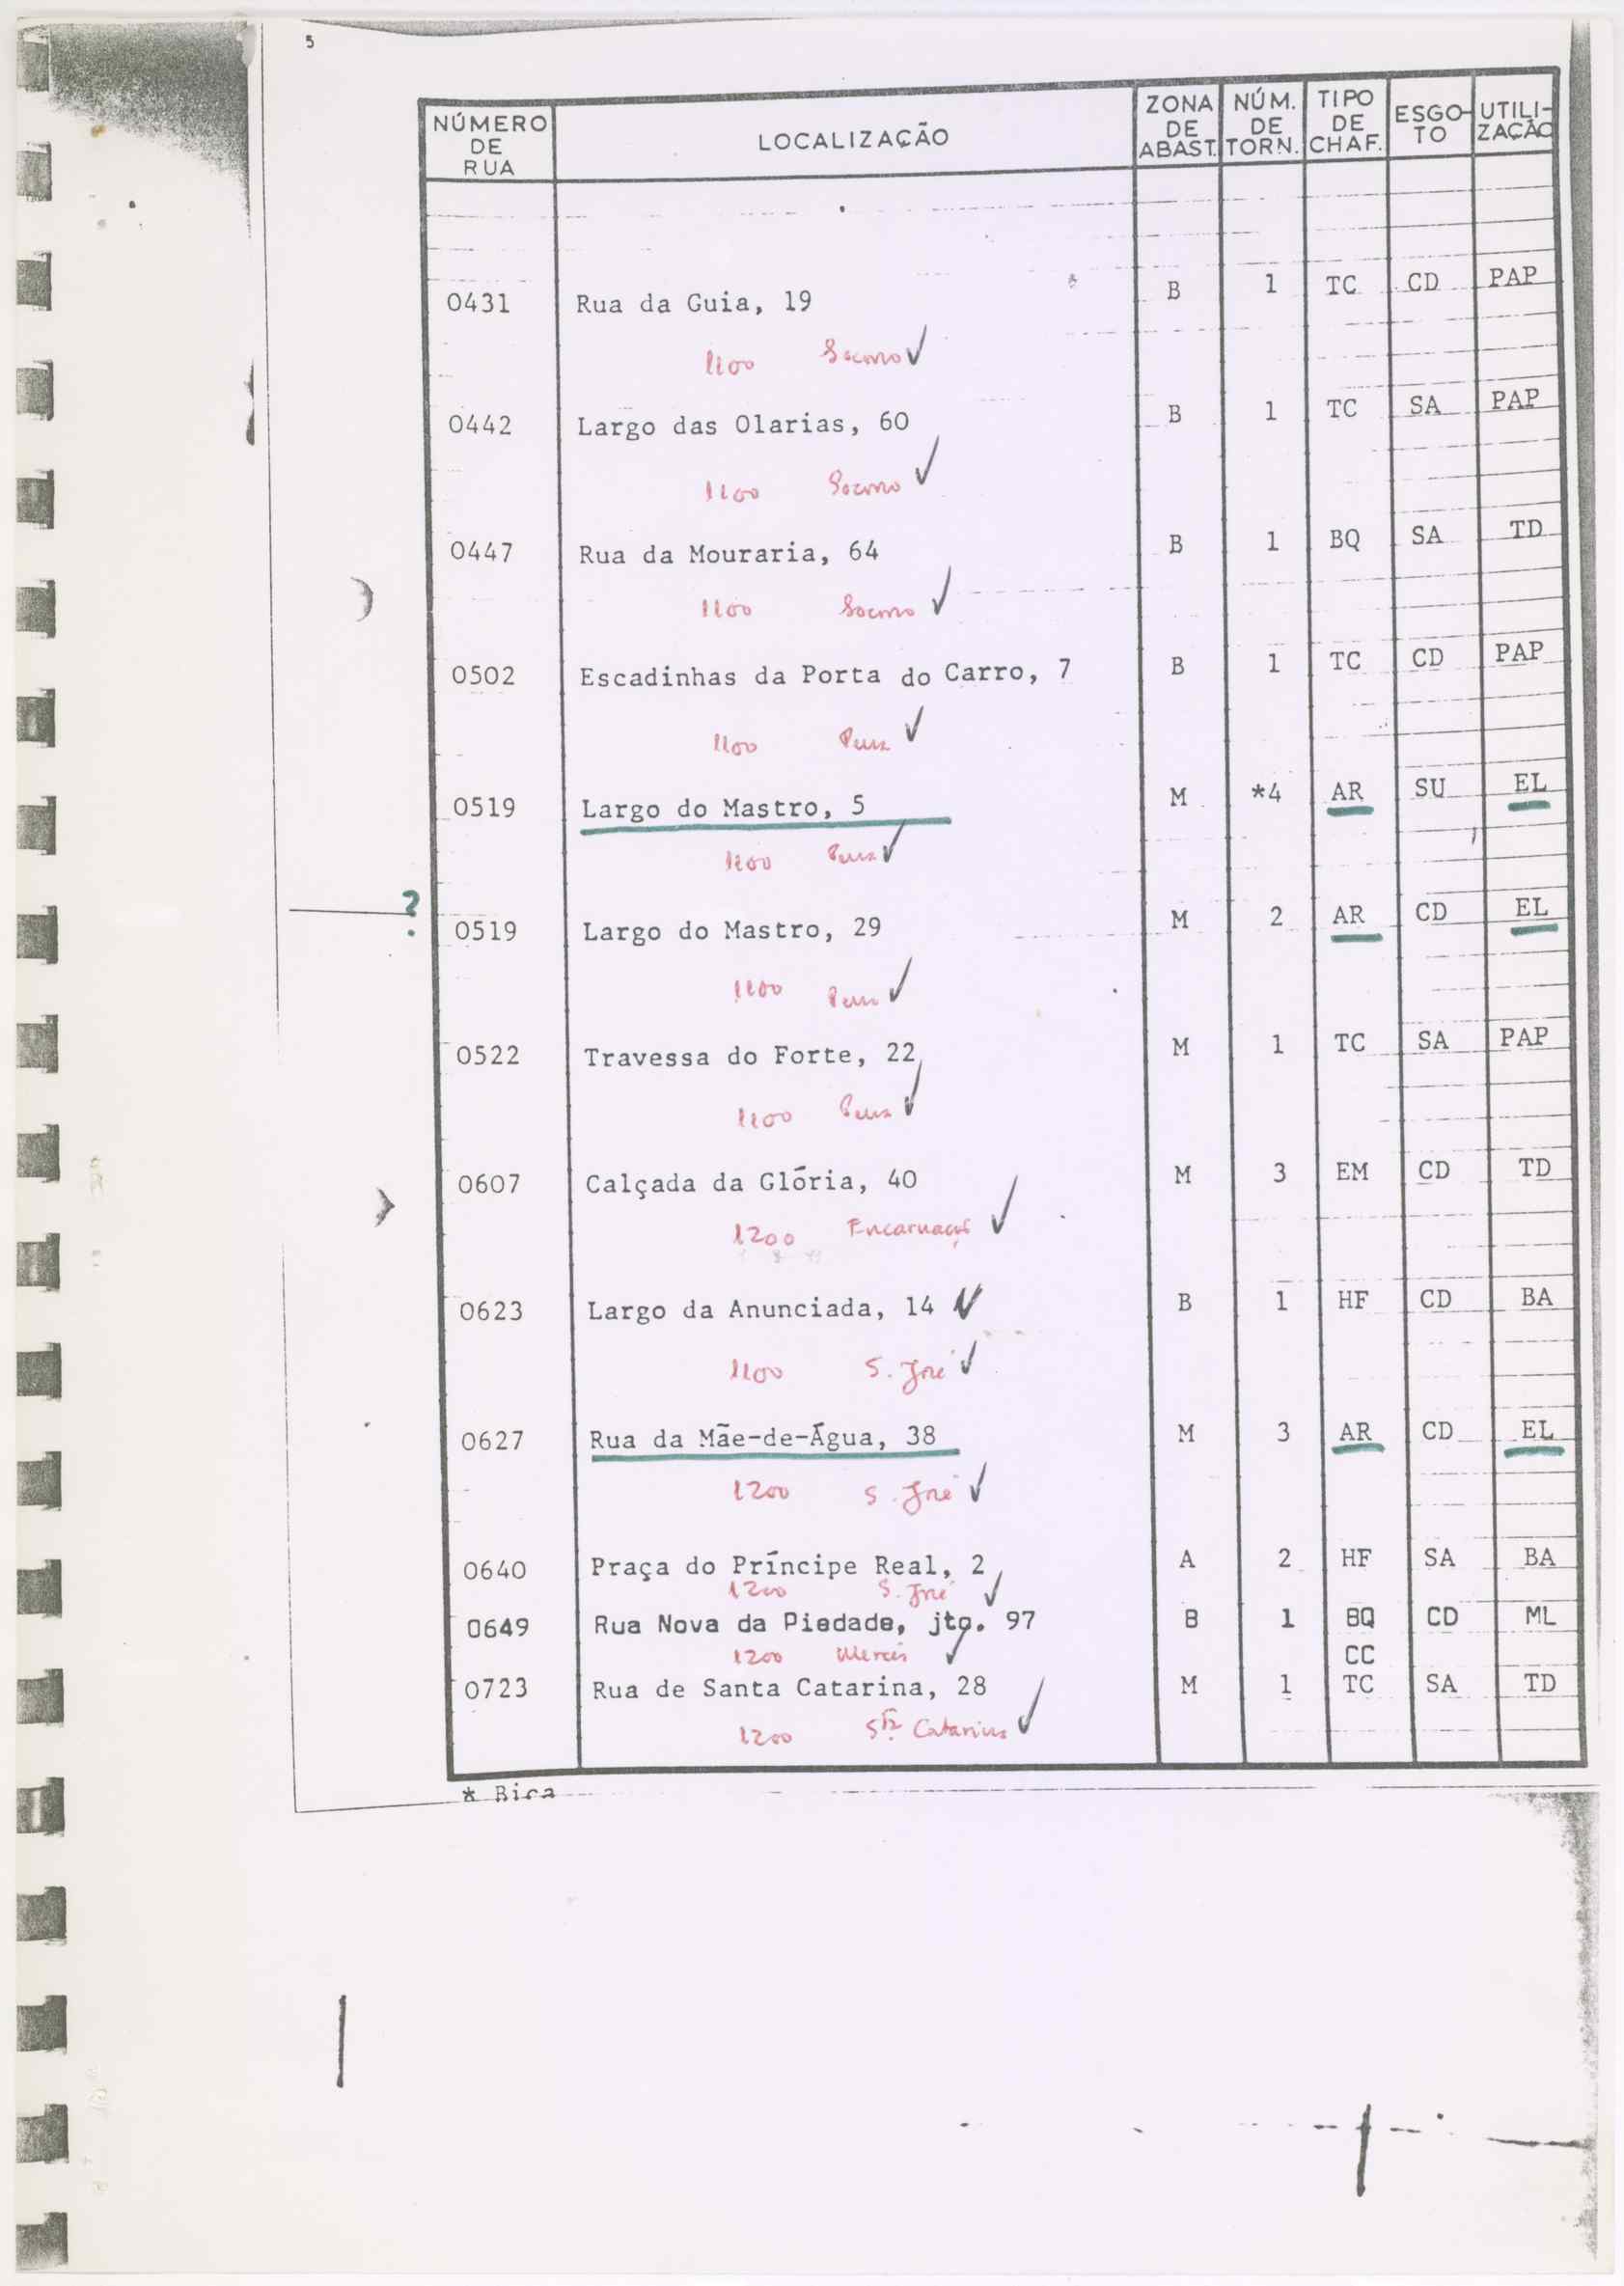 5
NÚMERO DE RUA LOCALIZAÇÃO ZONA DE ABAST. NÚM. DE TORN. TIPO DE CHAF. ESGO-TO UTILI-ZAÇÃO
0431 Rua da Guia, 19 B 1 TC CD PAP
1100 Socorro
0442 Largo das Olarias, 60 B 1 TC SA PAP
1100 Socorro
0447 Rua da Mouraria, 64 B 1 BQ SA TD
1100 Socorro
0502 Escadinhas da Porta do Carro, 7 B 1 TC CD PAP
1100 Pena
0519 Largo do Mastro, 5 M *4 AR SU EL
1100 Pena
? 0519 Largo do Mastro, 29 M 2 AR CD EL
1100 Pena
0522 Travessa do Forte, 22 M 1 TC SA PAP
1100 Pena
0607 Calçada da Glória, 40 M 3 EM CD TD
1200 Encarnação
0623 Largo da Anunciada, 14 B 1 HF CD BA
1100 S. José
0627 Rua da Mãe-de-Água, 38 M 3 AR CD EL
1200 S. José
0640 Praça do Príncipe Real, 2 A 2 HF SA BA
1200 S. José
0649 Rua Nova da Piedade, jto. 97 B 1 BQ CD ML
1200 Mercês CC
0723 Rua de Santa Catarina, 28 M 1 TC SA TD
1200 Stª Catarina
* Bica